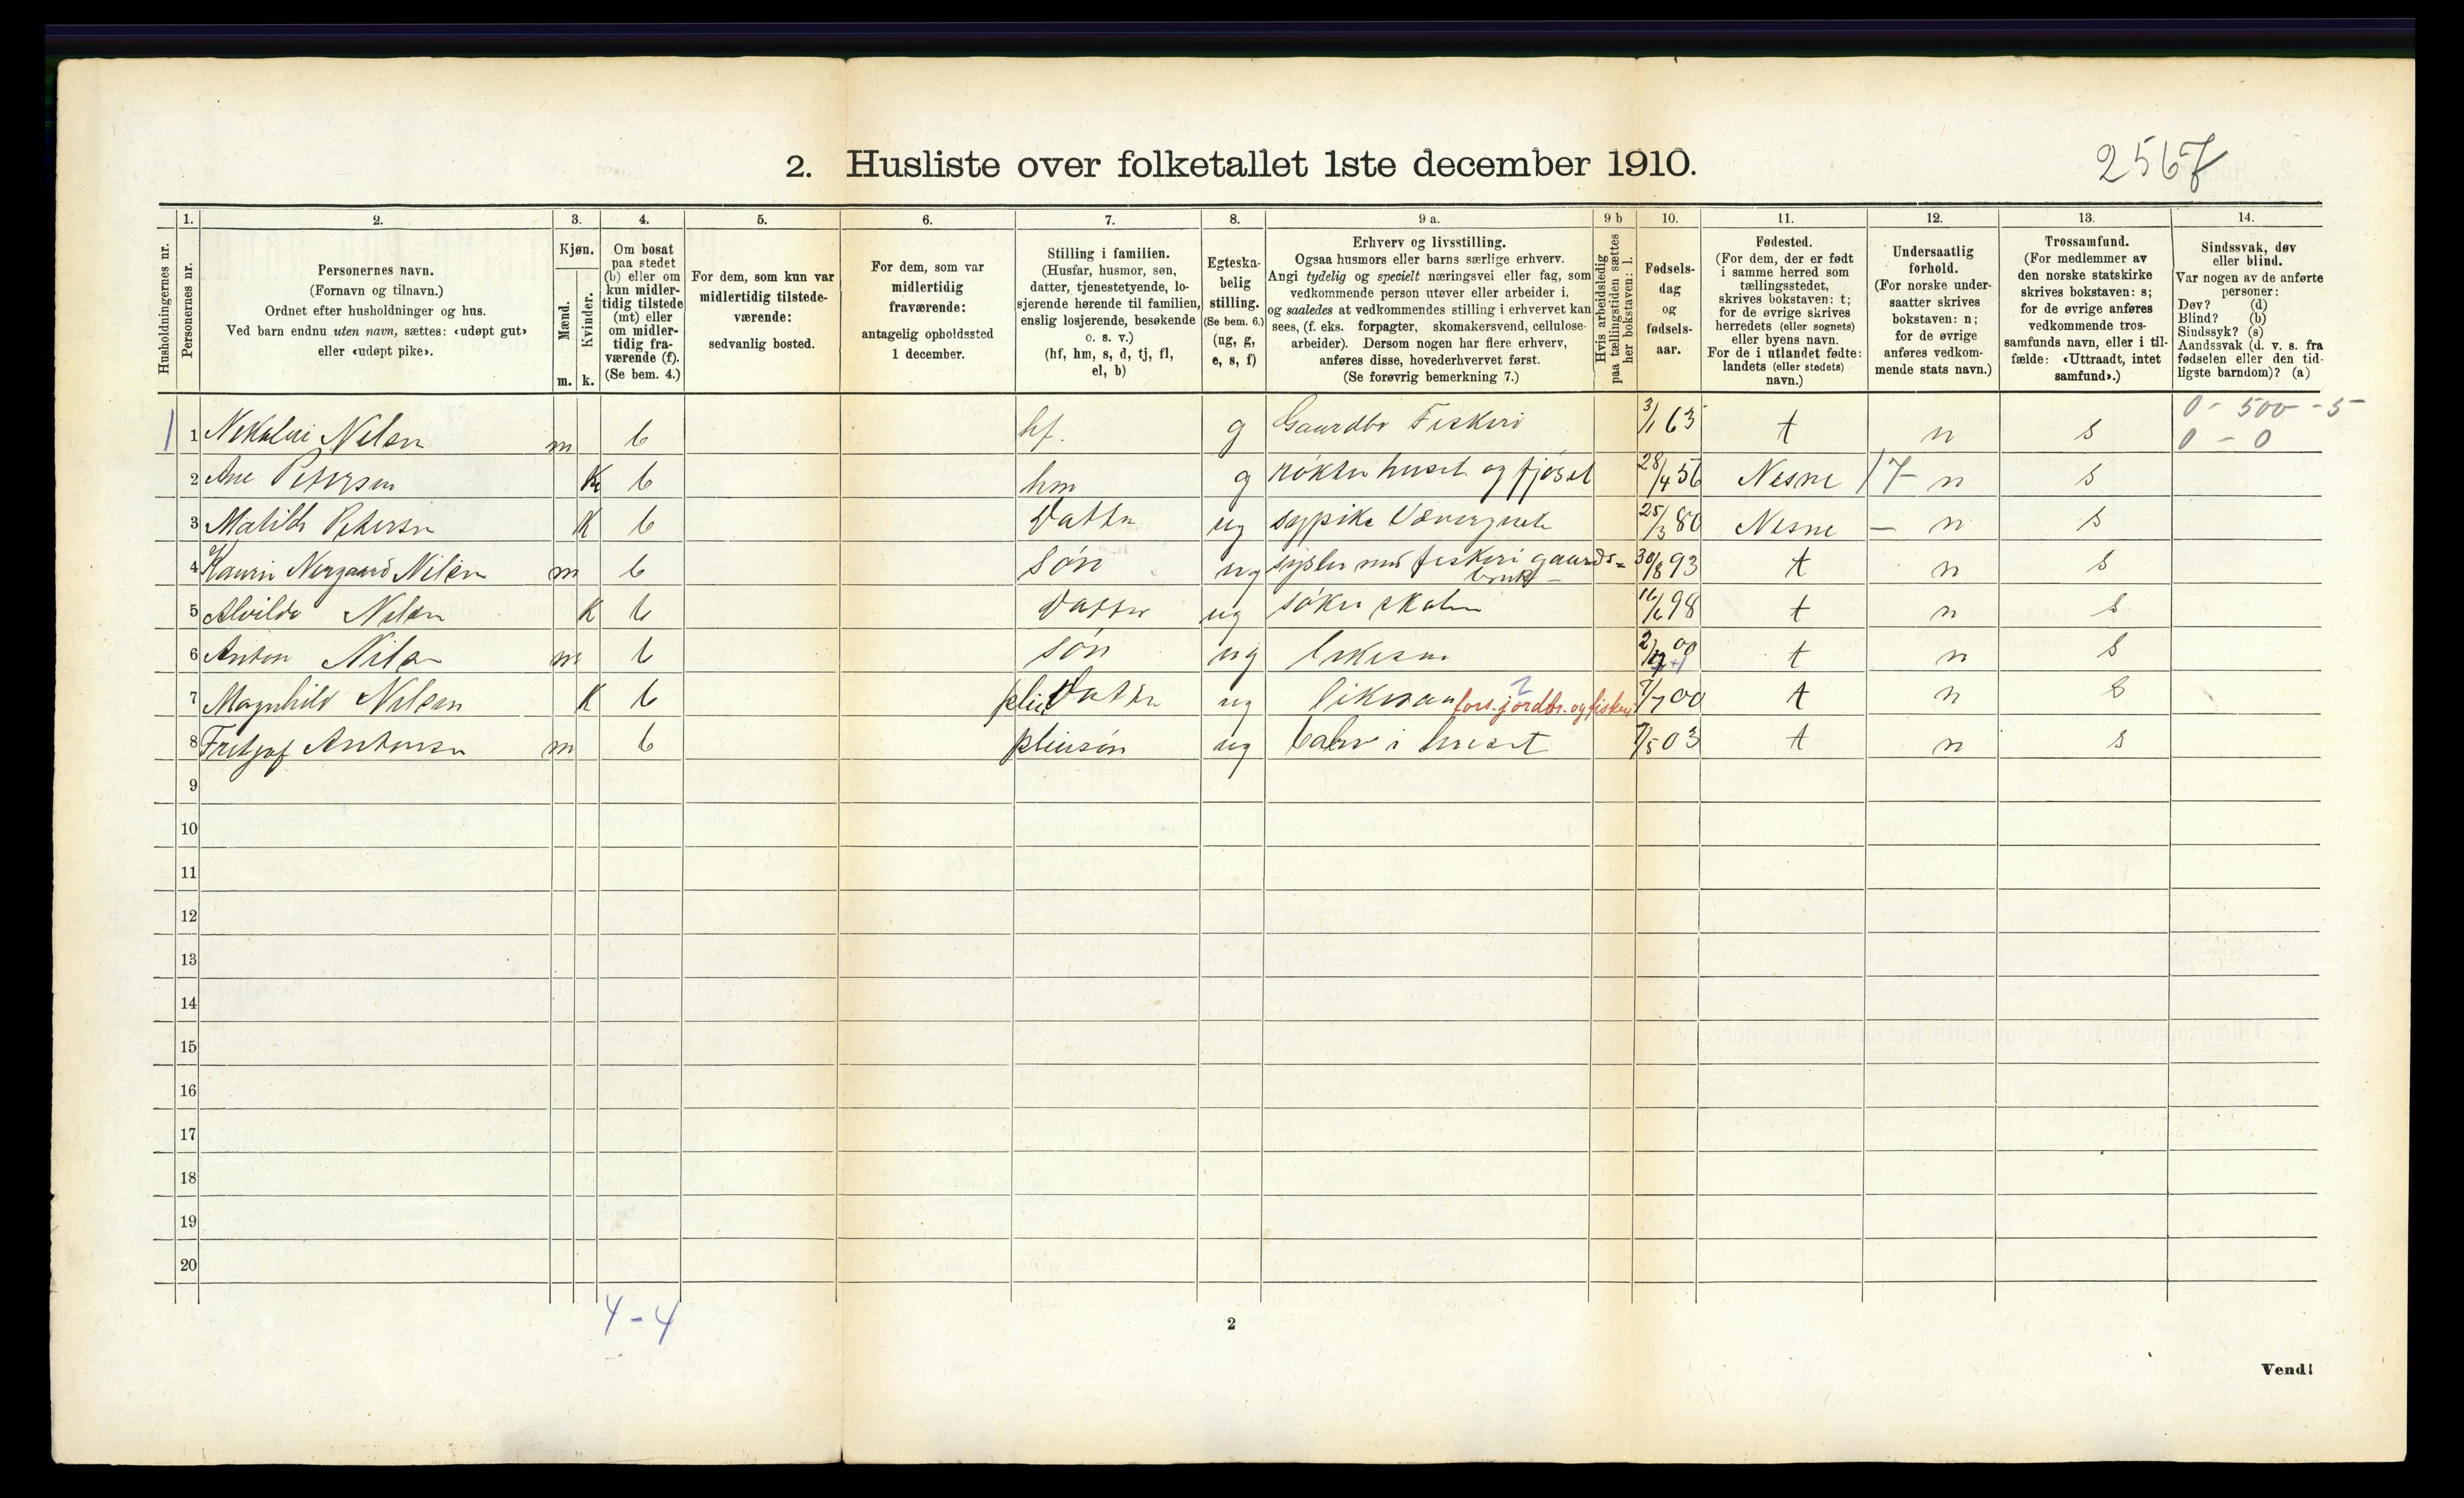 2. Husliste over folketallet 1ste december 1910.
2567
1. 2. 3. 4. 5. 6. 7. 8. 9 a. 9 b 10. 11. 12. 13. 14.
Husholdningernes nr.
Personernes nr.
Personernes navn.
(Fornavn og tilnavn.)
Ordnet efter husholdninger og hus.
Ved barn endnu uten navn, sættes: «udøpt gut»
eller «udøpt pike».
Kjøn.
Mænd.
Kvinder.
m. k.
Om bosat
paa stedet
(b) eller om
kun midler-
tidig tilstede
(mt) eller
om midler-
tidig fra-
værende (f).
(Se bem. 4.)
For dem, som kun var
midlertidig tilstede-
værende:
sedvanlig bosted.
For dem, som var
midlertidig
fraværende:
antagelig opholdssted
1 december.
Stilling i familien.
(Husfar, husmor, søn,
datter, tjenestetyende, lo-
sjerende hørende til familien,
enslig losjerende, besøkende
o. s. v.)
(hf, hm, s, d, tj, fl,
el, b)
Egteska-
belig
stilling.
(Se bem. 6.)
(ug, g,
e, s, f)
Erhverv og livsstilling.
Ogsaa husmors eller barns særlige erhverv.
Angi tydelig og specielt næringsvei eller fag, som
vedkommende person utøver eller arbeider i,
og saaledes at vedkommendes stilling i erhvervet kan
sees, (f. eks. forpagter, skomakersvend, cellulose-
arbeider). Dersom nogen har flere erhverv,
anføres disse, hovederhvervet først.
(Se forøvrig bemerkning 7.)
Hvis arbeidsledig
paa tællingstiden sættes
her bokstaven: l.
Fødsels-
dag
og
fødsels-
aar.
Fødested.
(For dem, der er født
i samme herred som
tællingsstedet,
skrives bokstaven: t;
for de øvrige skrives
herredets (eller sognets)
eller byens navn.
For de i utlandet fødte:
landets (eller stedets)
navn.)
Undersaatlig
forhold.
(For norske under-
saatter skrives
bokstaven: n;
for de øvrige
anføres vedkom-
mende stats navn.)
Trossamfund.
(For medlemmer av
den norske statskirke
skrives bokstaven: s;
for de øvrige anføres
vedkommende tros-
samfunds navn, eller i til-
fælde: «Uttraadt, intet
samfund».)
Sindssvak, døv
eller blind.
Var nogen av de anførte
personer:
Døv? (d)
Blind? (b)
Sindssyk? (s)
Aandssvak (d. v. s. fra
fødselen eller den tid-
ligste barndom)? (a)
0 - 500 - 5
0 - 0
1 1 Nilsen m b hf. g Gaardbr Fiskeri 3/1 63 t n s
2 Ane Petersen K b hm g røkter huset og fjøset 28/4 56 Nesne 17 - n s
3 Matilde Petersen K b Datter ug sypike 25/3 80 Nesne - n s
4 Nilsen m b søn ug sysler med fiskeri gaards=
bruk 30/8 93 t n s
5 Alvilde Nilsen K b Datter ug søker skolen 16/6 98 t n s
6 Anton Nilsen m b søn ug 2/12 00 t n s
7 Magnhild Nilsen K b pleie Datter ug likesaa fors. jordbr. og fiskeri 7/7 00 t n s
8 Fritjof Antonsen m b pleiesøn ug barn i huset 7/5 03 t n s
9
10
11
12
13
14
15
16
17
18
19
20
4 - 4
2
Vend!